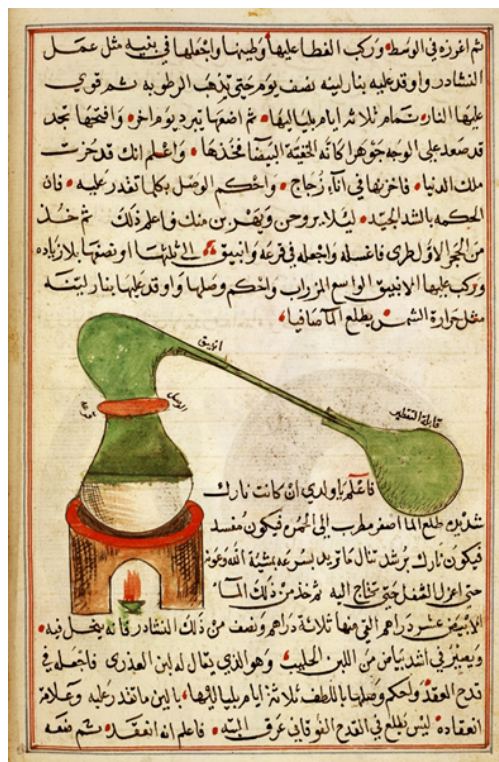 ثم اغرزه في الوسط وركب الغطا عليها وطينها واجعلها في بنيه مثل عمل
النشادر واوقد عليه بنار لينه نصف يوم حتى يذهب الرطوبه ثم قوي
عليها النار تمام ثلاثه ايام بلياليها ثم اضعها يبرد يوم اخر وافتحها تجد
قد صعد على الوجه جوهرا كانه البيضا فخذها واعلم انك قد حزت
ملك الدنيا فاخزنها في اناء زجاج واحكم الوصل بكلما تقدر عليه فان
الحكمه بالشد الجيد ليلا يروحن ويفرن منك فاعلم ذلك ثم خذ
من الحجر الاول طرى فاغسله واجعله في قرعه وانبيق الى ثلثها او نصفها بلا زياده
وركب عليها الانبيق الواسع المزراب واحكم وصلها واوقد عليها بنار لينه
مثل حرارة الشمس يطلع الما صافيا
انبيق
الوصل
قابلة التقطير
فاعلم يا ولدي ان كانت نارك
شديده طلع الما اصفر مطرب الى الحمره فيكون مفسد
فيكون نارك برشد تنال ما تريد بسرعه بمشية الله وعونه
حتى اعزل الثفل حتى تحتاج اليه ثم خذ من ذلك الما
الابيض عشر دراهم القي منها ثلاثة دراهم ونصف من ذلك النشادر فانه ينحل فيه
ويصير في اشد بياض من اللبن الحليب وهو الذي يقال له لبن العذرى فاجعله في
قدح العقد واحكم وصلها باللطف ثلاثة ايام بلياليها بالين ما تقدر عليه وعلامة
انعقاده ليس يطلع في القدح الفوقاني عرق البته فاعلم انه انعقد ثم ضعه